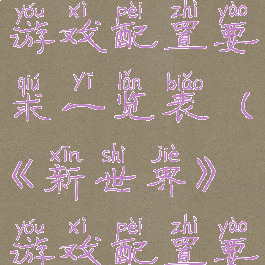 yóu xì pèi zhì yào
游戏配置要
qiú yī lǎn biǎo
求一览表（
xīn shì jiè
《新世界》
yóu xì pèi zhì yào
游戏配置要